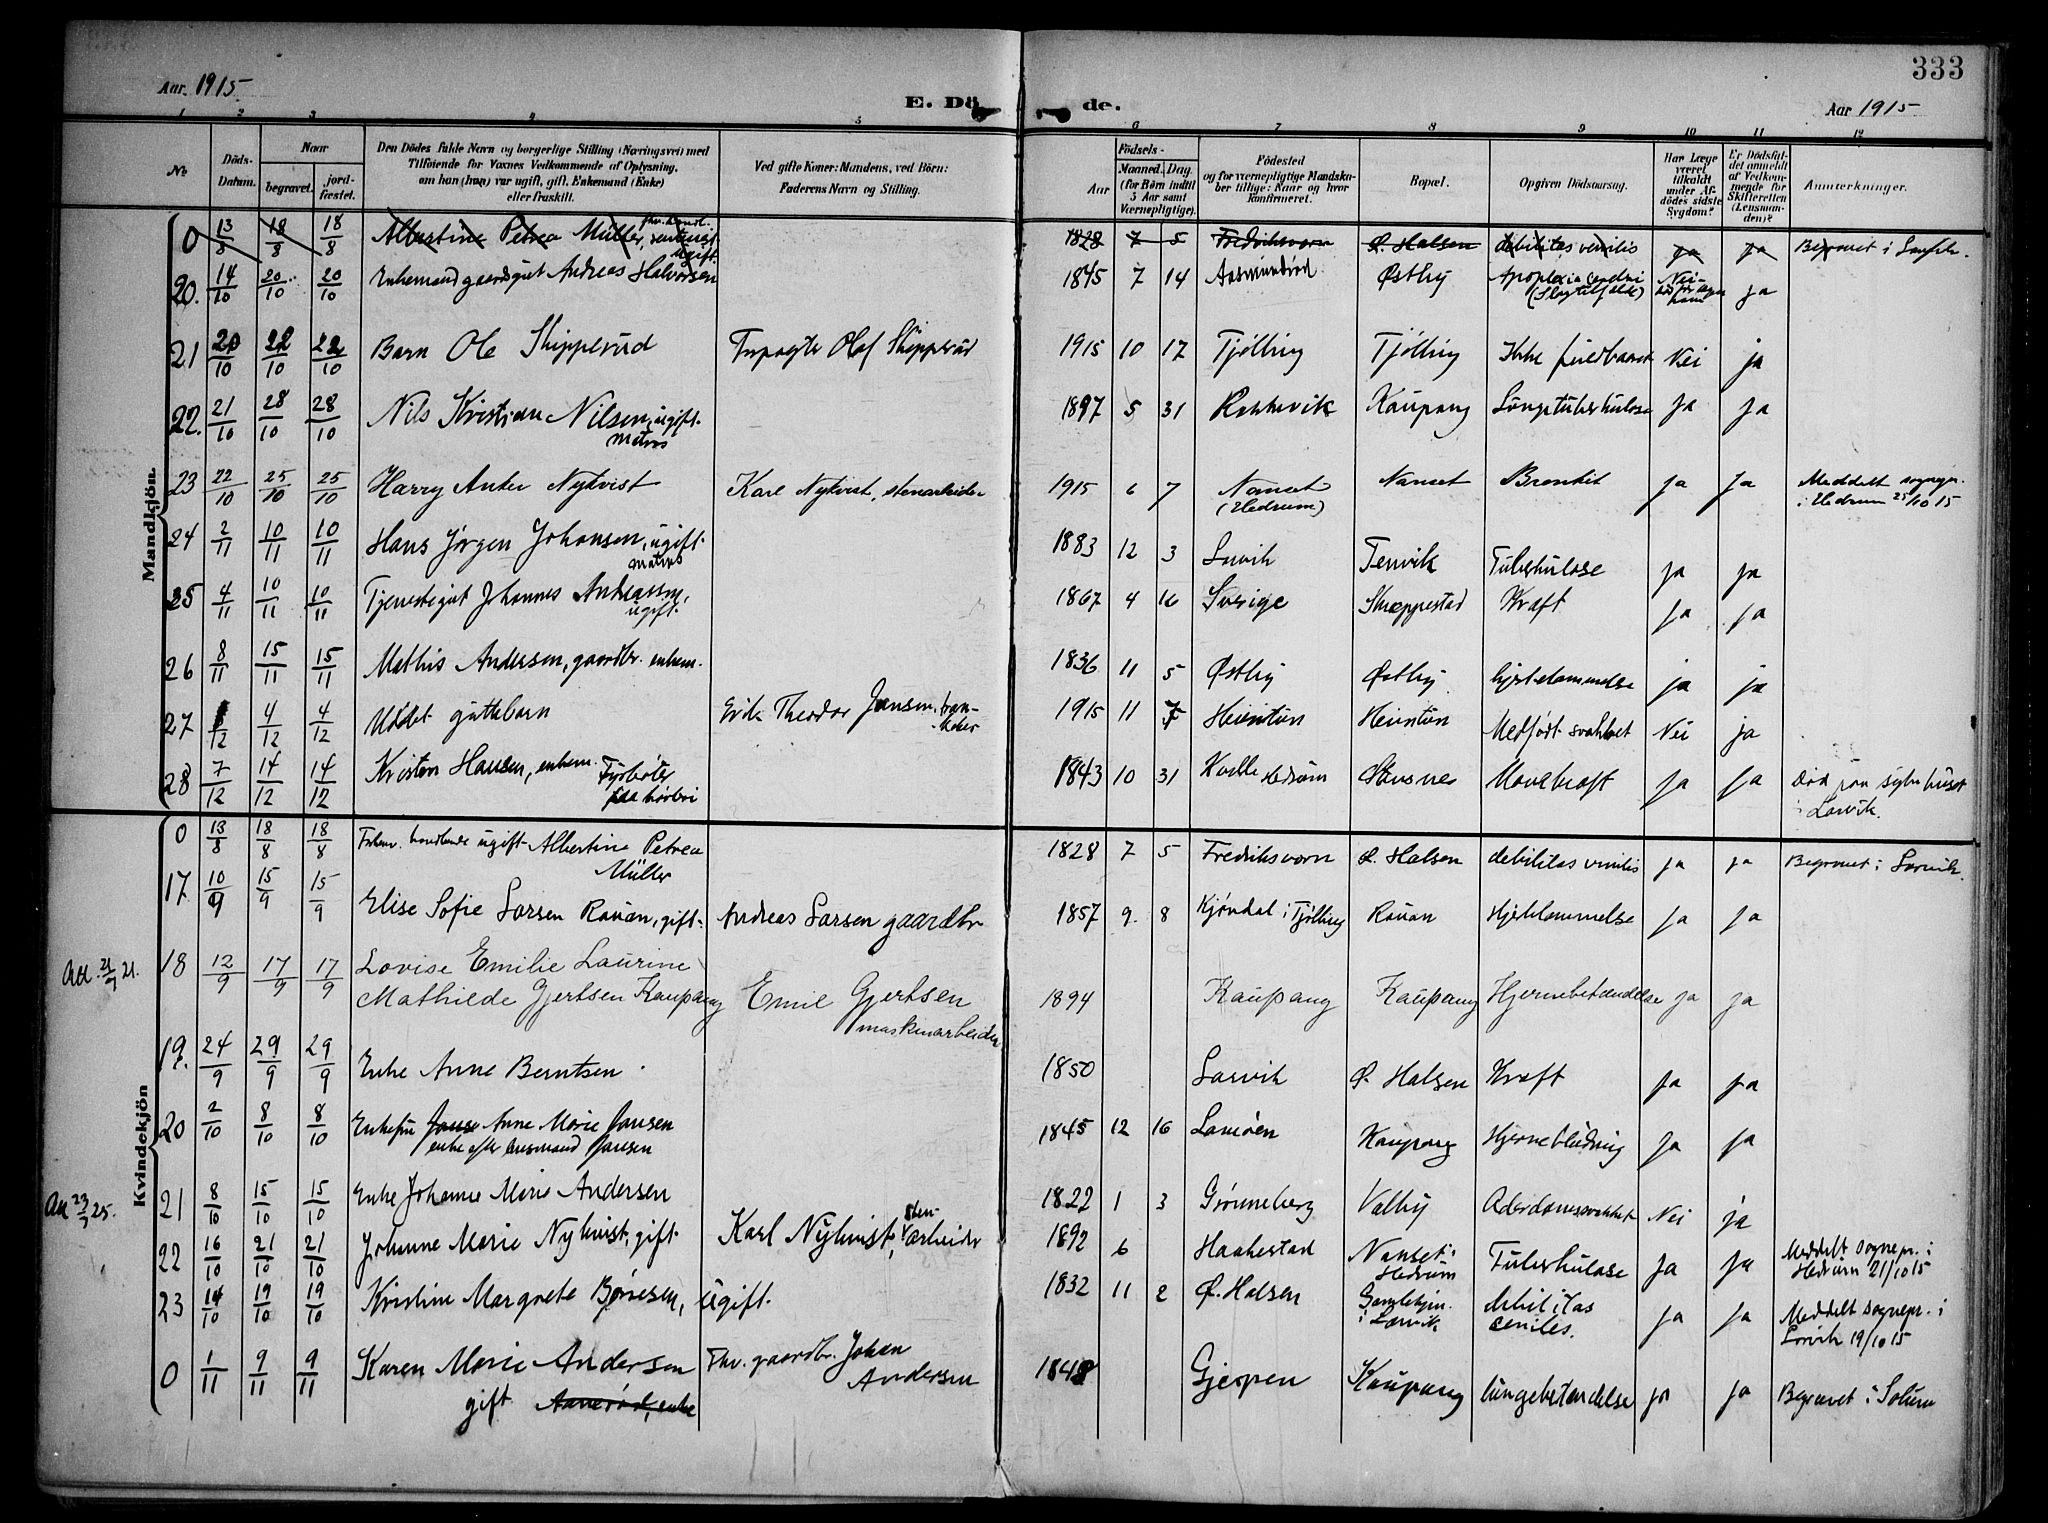 333
Aar. 1915
E. Döde.
Aar 1915
1 2 3 4 5 6 7 8 9 10 11 12
No
Döds-Datum.
Naar begravet. jordfæstet.
Den Dödes fulde Navn og borgerlige Stilling (Næringsvei) med Tilföiende for Voxnes Vedkommende af Oplysning, om han (hun) var ugift, gift, Enkemand (Enke) eller fraskilt.
Ved gifte Koner: Mandens, ved Börn: Faderens Navn og Stilling.
Aar
Födsels- Maaned. Dag. (for Börn indtil 5 Aar samt Værnepligtige).
Födested og for værnepligtige Mandskaber tillige: Naar og hvor konfirmeret.
Bopæl.
Opgiven Dödsaarsag.
Har Læge været tilkaldt under Afdödes sidste Sygdom?
Er Dödsfaldet anmeldt af Vedkommende for Skifteretten (Lensmanden)?
Anmærkninger.
Mandkjön.
0 13/8 18/8 18/8 Albertine Petrea Müller, ugift. 1828 7 5 Fredriksvorn Ø. Halsen debilitas senilis ja ja Begravet i Larvik.
20. 14/10 20/10 20/10 Enkemand gaardsgut Andreas Halvorsen 1845 7 14 Aasmundrød Østby Apoplexia cerebri (Slagtilfælde) Nei ja
21 20/10 22/10 22/10 Barn Ole Skipperud Forpagter Olaf Skipperud 1915 10 17 Tjølling Tjølling Ikke fuldbaaret Nei ja
22. 21/10 28/10 28/10 Nils Kristian Nilsen, ugift. matros 1897 5 31 Rekkevik Kaupang Lungetuberkulose ja ja
23 22/10 25/10 25/10 Harry Anker Nykvist Karl Nykvist, stenarbeider 1915 6 7 Nanset (Hedrum) Nanset Bronkit ja ja Meddelt sognepr. i Hedrum 25/10 15
24 2/11 10/11 10/11 Hans Jørgen Johansen, ugift. matros 1883 12 3 Larvik Tenvik Tuberkulose ja ja
25 4/11 10/11 10/11 Tjenestegut Johannes Andreassen, ugift. 1867 4 16 Sverige Skreppestad Kræft ja ja
26 8/11 15/11 15/11 Mathis Andersen, gaardbr. enkem. 1836 11 5 Østby Østby hjertelammelse ja ja
27 1/12 4/12 4/12 Udøbt guttebarn Erik Theodor Jansen, 1915 11 Heientun Heientun Medfødt svakhet Nei ja
28 7/12 14/12 14/12 Kristen Hansen, enkem. Fyrbøter 1843 10 31 Kvelle Hedrum Mavekræft ja ja Død paa sykehuset i Larvik.
Kvindekjön
0 13/8 18/8 18/8 Forhenv. handlende ugift Albertine Petrea Müller 1828 7 5 Fredriksvorn Ø. Halsen debilitas senilis ja ja Begravet i Larvik.
17. 10/9 15/9 15/9 Elise Sofie Larsen Rauan, gift. Andreas Larsen gaardbr 1857 9. 8 Kjøndal i Tjølling Rauan Hjertelammelse ja ja
18 12/9 17/9 17/9 Lovise Emilie Laurine Mathilde Gjertsen Kaupang Emil Gjertsen maskinarbeider 1894 Kaupang Kaupang Hjernebetændelse ja ja
19. 24/9 29/9 29/9 Enke Anne Berntsen. 1850 Larvik Ø. Halsen Kræft ja ja
20 2/10 8/10 8/10 Enkefru Janse Anne Marie Jansen enke efter husmand Jansen 1845 12 16 Lamøen Kaupang Hjerneblødning ja ja
21 8/10 15/10 15/10 Enke Johanne Marie Andersen 1822 1 3 Grønneberg Valby Alderdomssvakhet Nei ja
22 16/10 21/10 21/10 Johanne Marie Nykvist, gift. Karl Nykvist, stenarbeider 1892 6 Haakestad Nanset i Hedrum Tuberkulose ja ja Meddelt sognepr. i Hedrum 21/10 15
23 14/10 19/10 19/10 Kristine Margrete Børresen, ugift. 1832 11 2 Ø. Halsen Gamlehjem. i Larvik debilitas seniles. ja ja Meddelt sognepr. i Larvik 19/10 15
0 1/11 9/11 9/11 Karen Marie Andersen gift Fhv. gaardbr. Johan Andersen 1848 Gjerpen Kaupang lungebetændelse ja ja Begravet i Solum